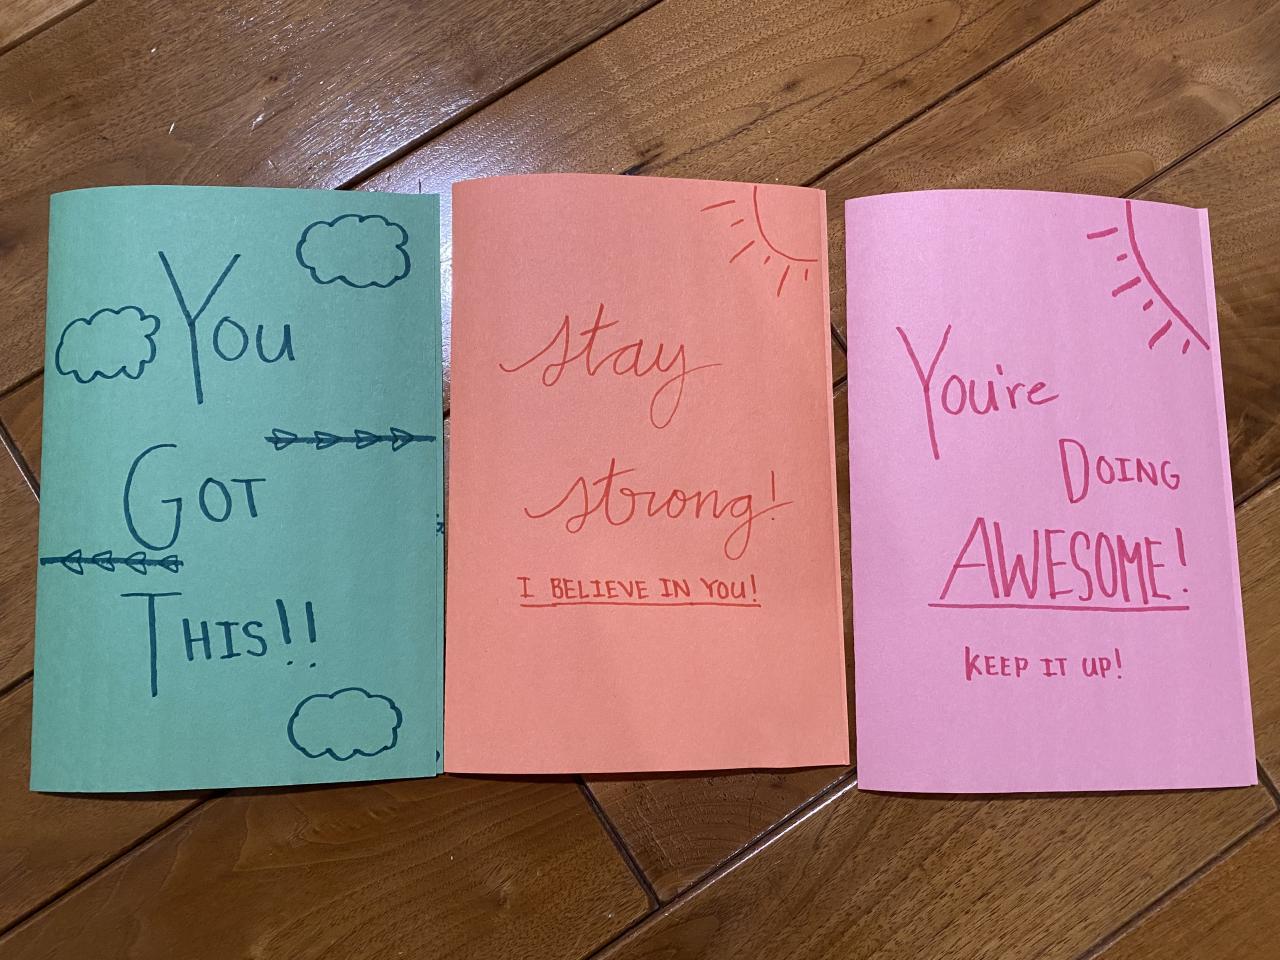 You
GOT
THIS!!
stay
strong!
I BELIEVE IN YOU!
You're
DOING
AWESOME!
KEEP IT UP!